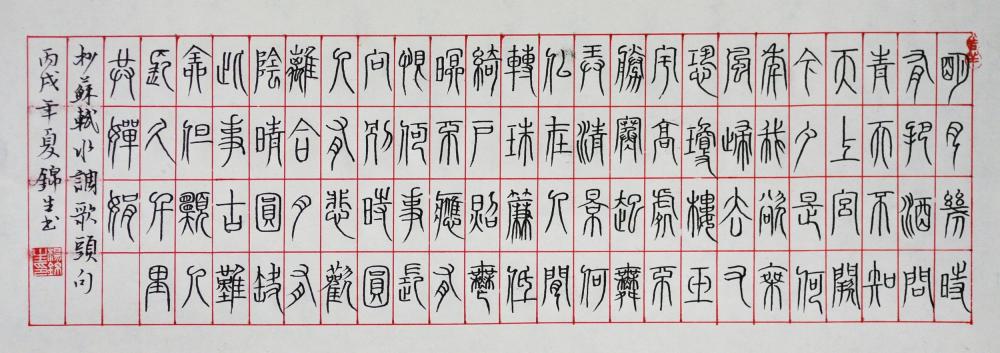 明月幾時
有把酒問
青天不知
天上宮闕
今夕是何
年我欲乘
風歸去又
恐瓊樓玉
宇高處不
勝寒起舞
弄清景何
似在人間
轉珠簾低
綺戶照無
眠不應有
恨何事長
向別時圓
人有悲歡
離合月有
陰晴圓缺
此事古難
全但願人
長久千里
共嬋娟
抄蘇軾水調歌頭句
丙戌年夏錦生書